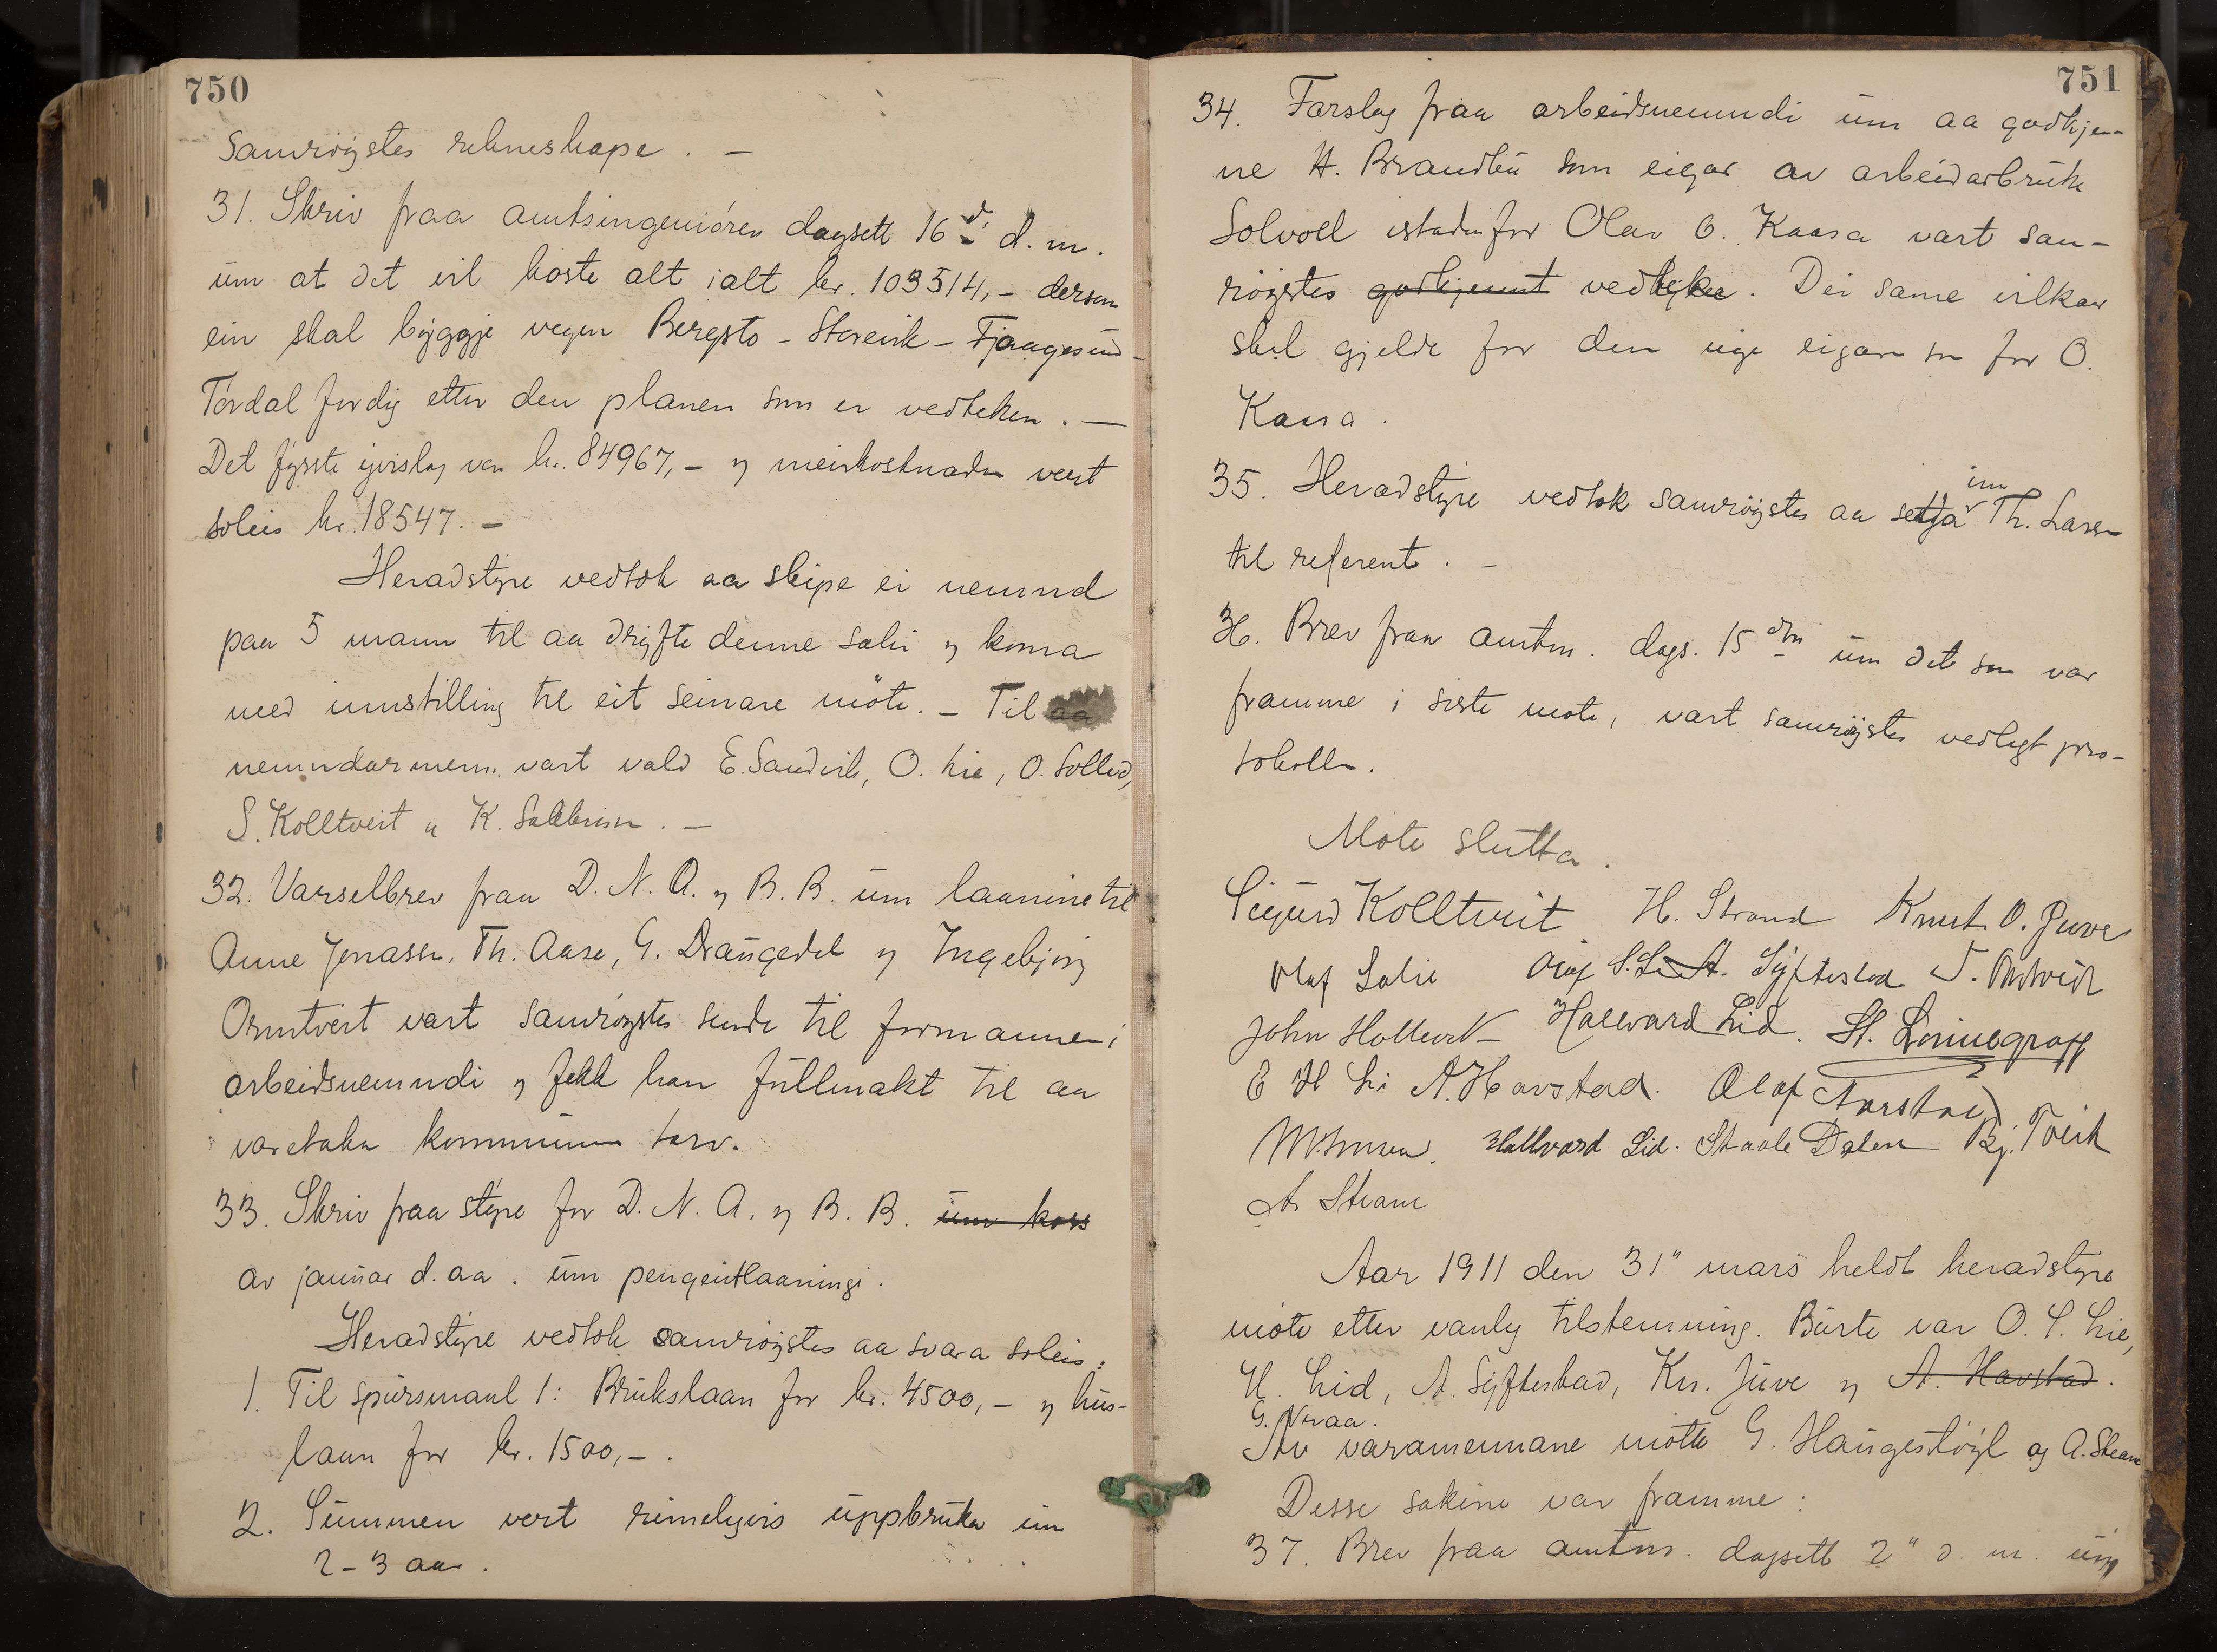 750
samrøystes rekneskape. —
31. Skriv fraa amtsingeniøren dagsett 16 d. m.
um at det vil koste alt ialt kr. 103514,- dersom
ein skal byggje vegen Bergsto - Storevik - Fjaagesund -
Tørdal ferdig etter den planen som er vedteken. —
Det fyrste yverslag var kr. 84967,- og meirkostnaden vert
soleis kr. 18547. —
Heradstyre vedtok aa skipe ei nemnd
paa 5 mann til aa drøfte denne saki og koma
med innstilling til eit seinare møte. — Til aa
nemndarmenn vart vald E. Sandvik, O. Lie, O. Sollid,
S. Kolltveit og K. . —
32. Varselbrev fraa D. N. A. og B. B. um laanine til
Anne Jonassen, Th. Aase, G. Drangedal og Ingebjørg
Ormtveit vart samrøystes sende til formannen i
arbeidsnemndi og fekk han fullmakt til aa
varetaka kommunens tarv.
33. Skriv fraa styre for D. N. A. og B. B. um kors
av januar d. aa. um pengeutlaaningi.
Heradstyre vedtok samrøystes aa svara soleis:
1. Til spursmaal 1: Brukslaan for kr. 4500,- og hus-
laan for kr. 1500,-.
2. Summen vert rimelegvis uppbruka um
2-3 aar.
751
34. Forslag fraa arbeidsnemndi um aa godkjen-
ne H. Brandbu som eigar av arbeidarbruke
Solvoll istadenfor Olav O. Kaasa vart sam-
røystes godkjennt vedteke. Dei same vilkaar
skal gjelde for den nye eigaren som for O.
Kaasa.
35. Heradstyre vedtok samrøystes aa setja inn Th. Larsen
til referent. —
36. Brev fraa amtm. dags. 15 dm um det som var
framme i siste møte, vart samrøystes vedlagt pro-
tokollen.
Møte slutta.
Sigurd Kolltveit H. Strand Knut O. Juve
Olaf Solie Olaf S. Lie A. Syftestad T.
John Holtvik Halvard Lid. H. Linnegraff
E H Li A. Havstad. Olaf Aarstad
Hallvard Lid. Staale Dalen Bj. Tveit
A. Steane
Aar 1911 den 31" mars heldt heradstyre
møte etter vanleg tilstemning. Burte var O. S. Lie,
H. Lid, A. Syftestad, Kn. Juve og A. Havstad.
G. Naraa.
Av varamennane møtte G. Haugestøyl og A. Steane
Desse sakine var framme:
37. Brev fraa amtm. dagsett 2" d. m. um